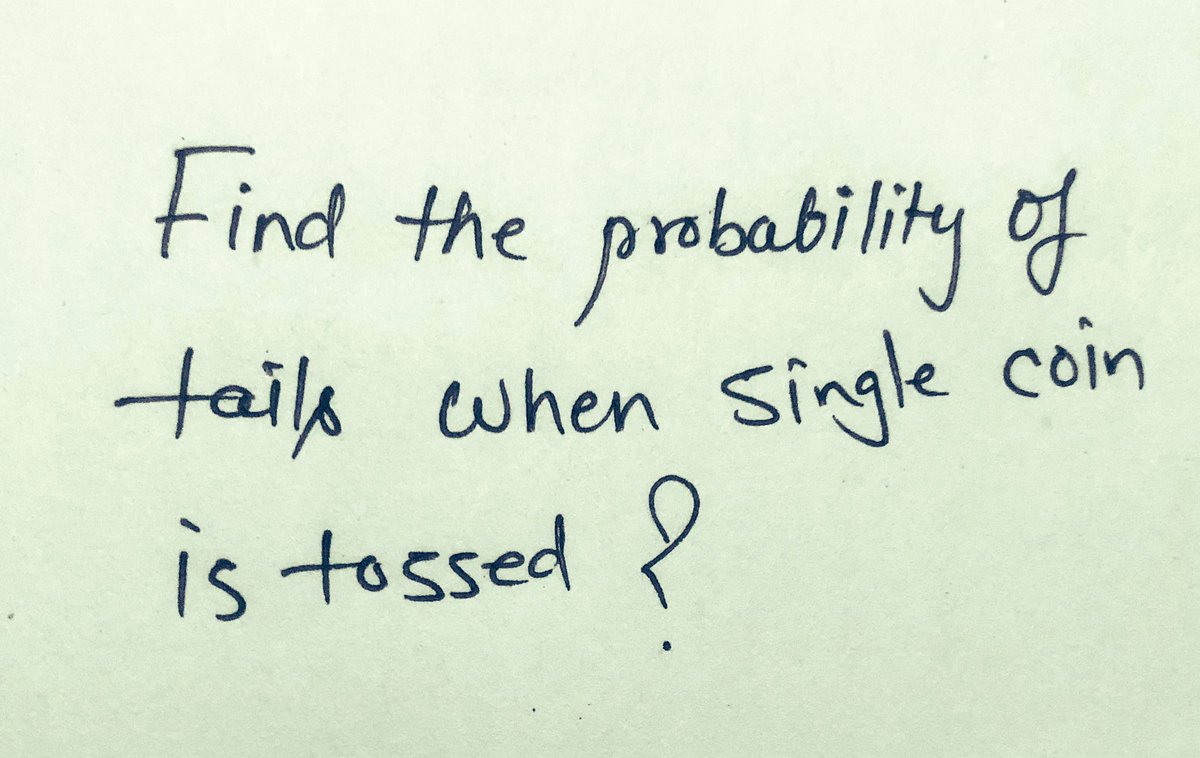 Find the probability of
tails when single coin
is tossed ?